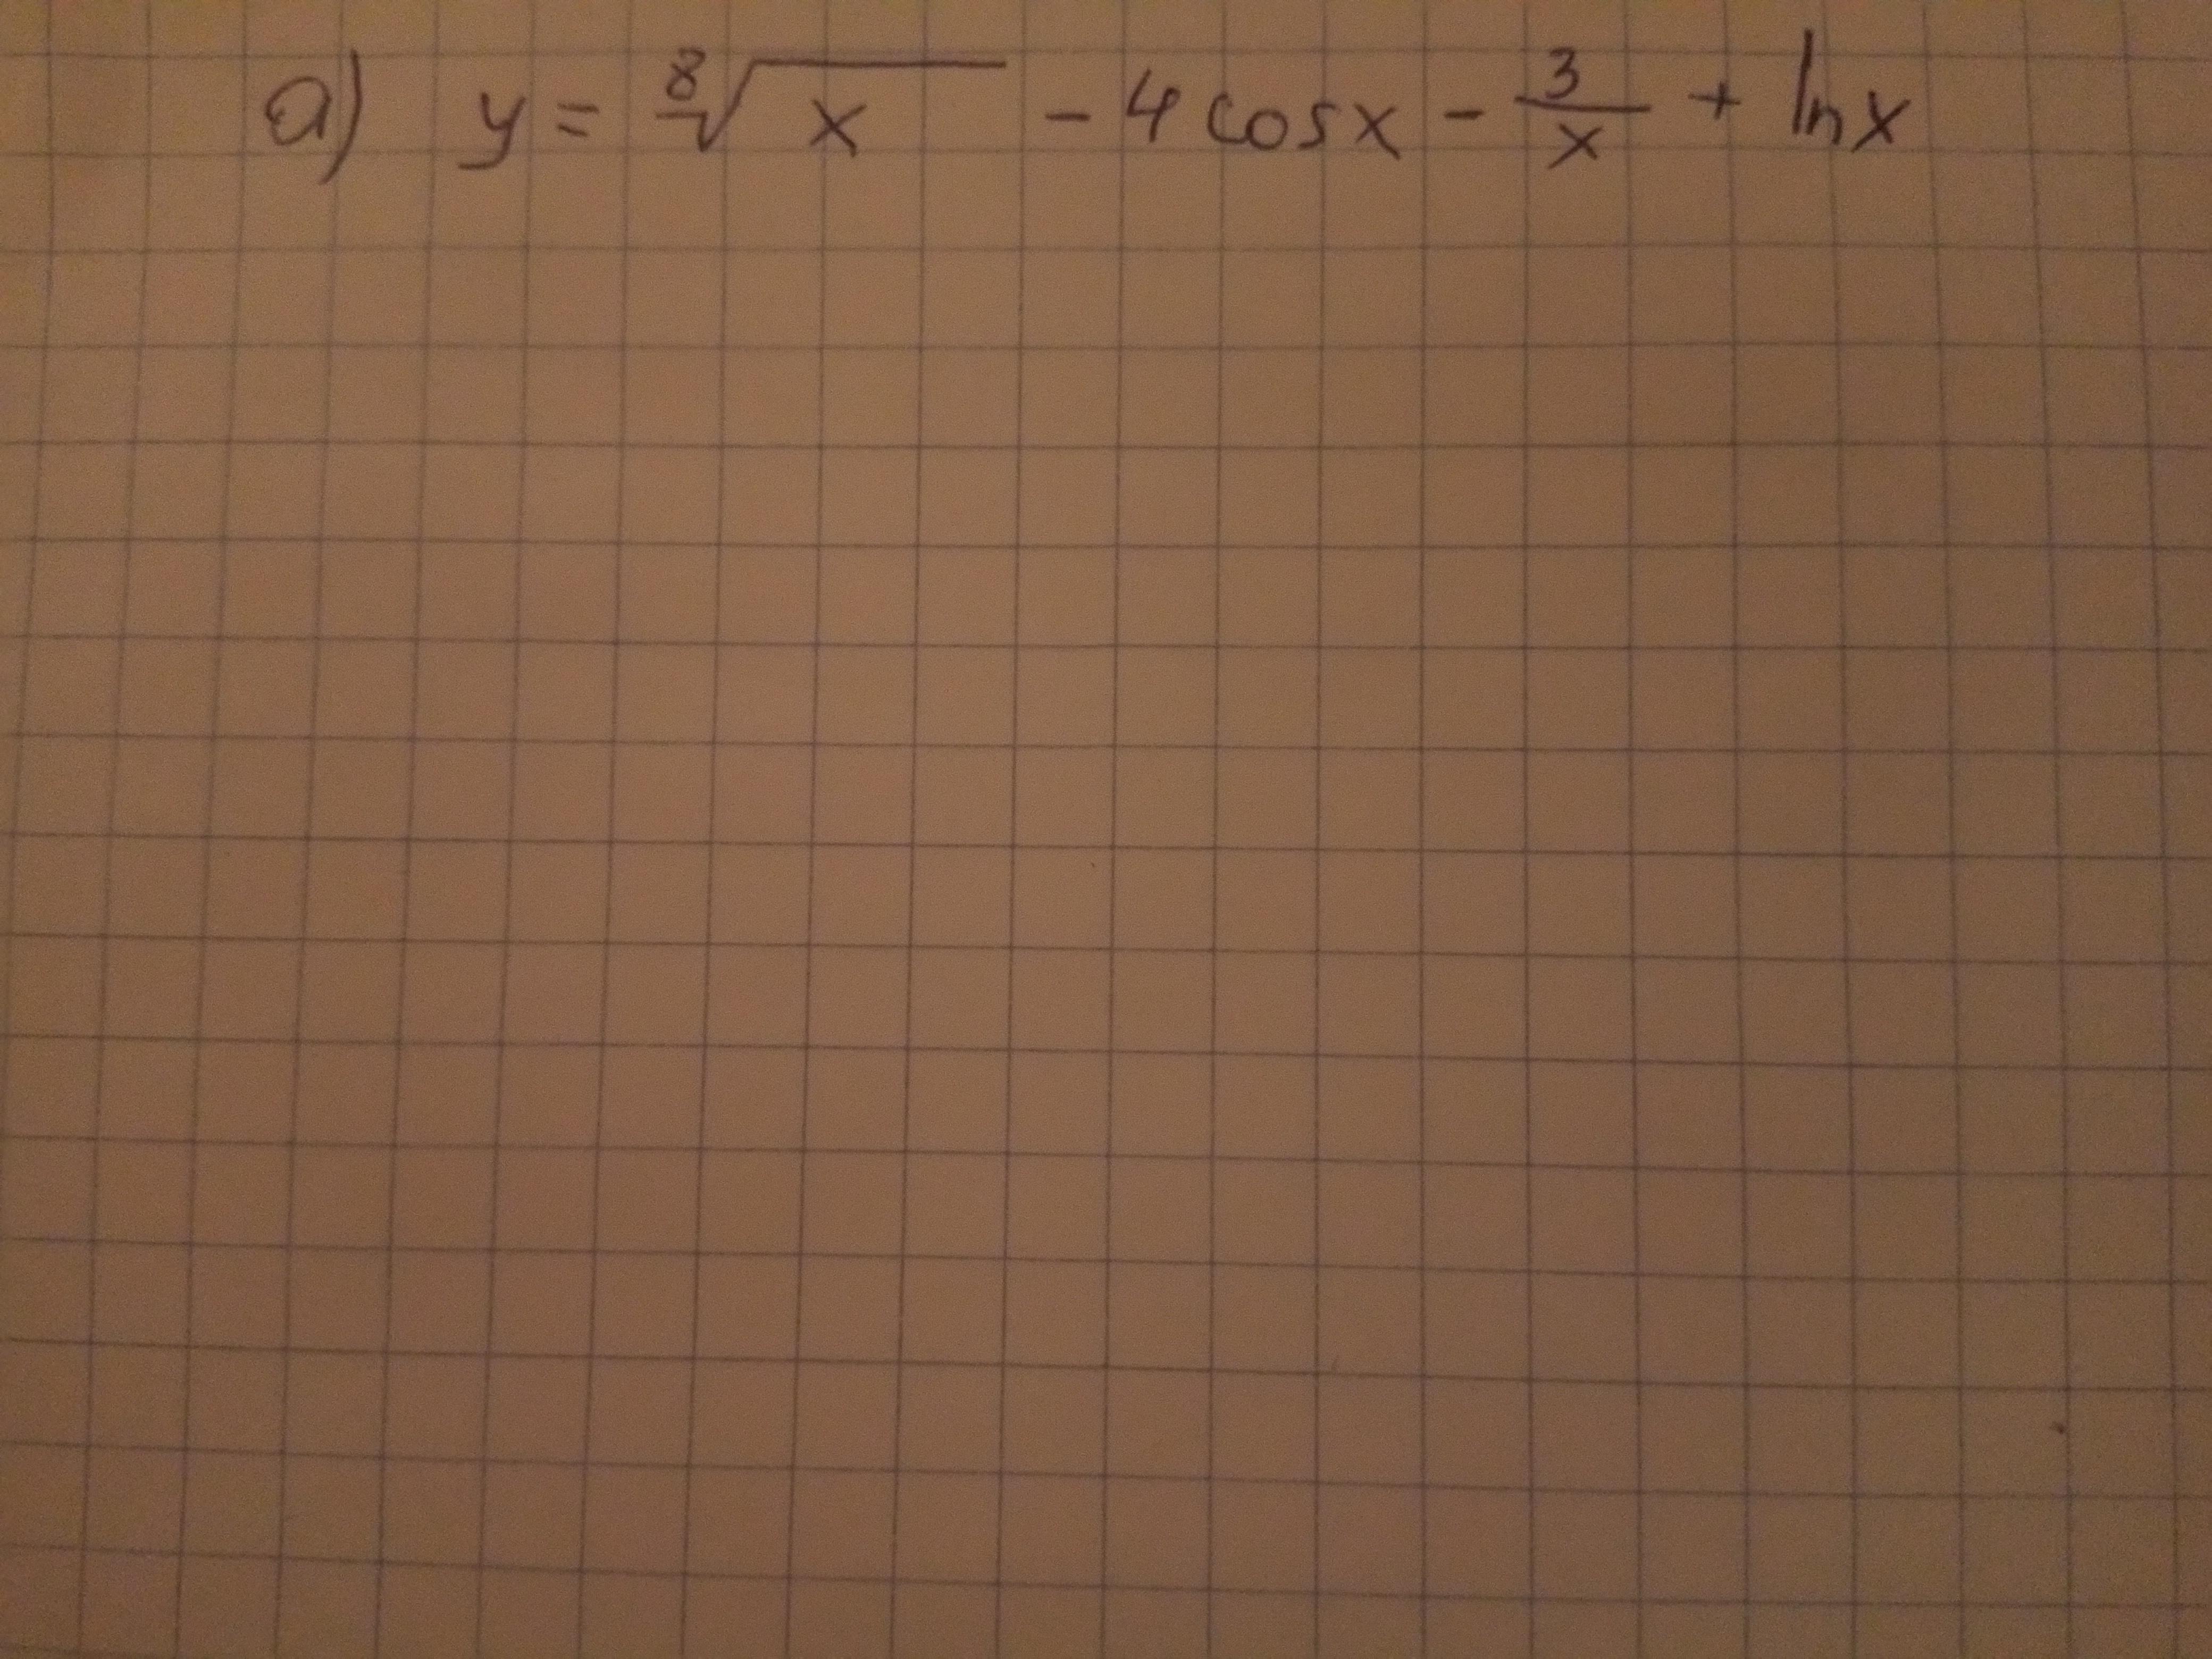 a) y = ⁸√x - 4 cosx - 3/x + lnx